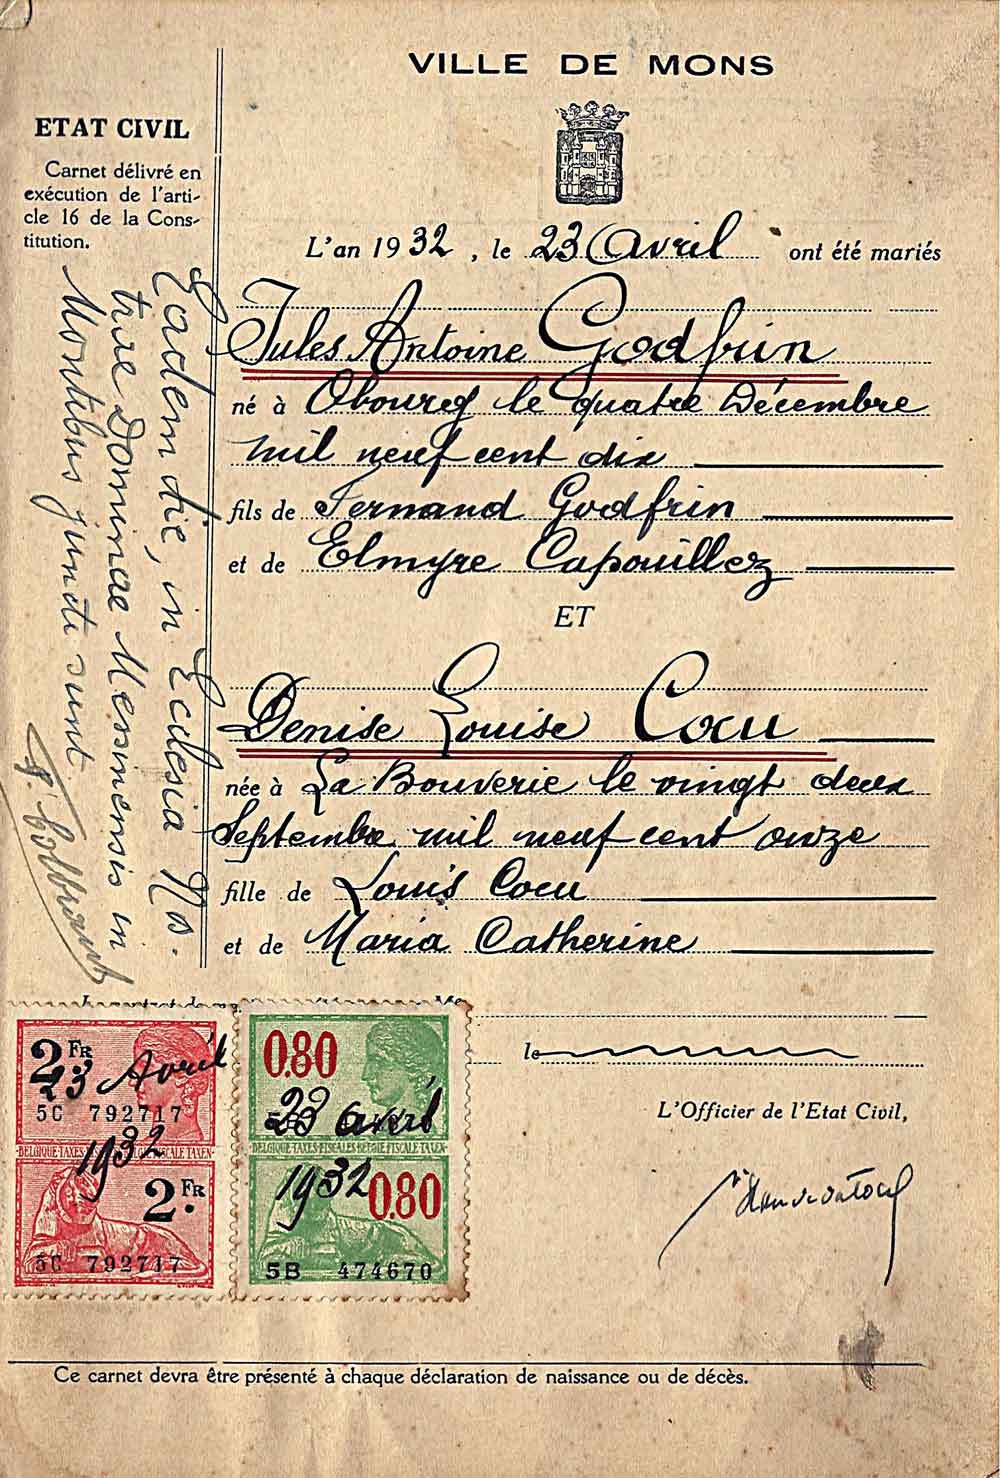 VILLE DE MONS
ETAT CIVIL
Carnet délivré en
exécution de l'arti-
cle 16 de la Cons-
titution.
L'an 1932, le 23 Avril ont été mariés
Jules Antoine Godfrin
né à Obourg le quatre Décembre
mil neuf cent dix
fils de Fernand Godfrin
et de Elmyre Capouillez
ET
Denise Louise Cocu
née à La Bouverie le vingt deux
Septembre mil neuf cent onze
fille de Louis Cocu
et de Maria Catherine
Eadem die, in Ecclesia No-
trae Dominae Messinensis in
Montibus juncti sunt
le
L'Officier de l'Etat Civil,
2 FR
23 Avril
5C 792717
1932
BELGIQUE-TAXES FISCALE TAXEN
2 FR
5C 792717
0.80
23 avril
BELGIQUE-TAXES-FISCALES BELGIE FISCALE TAXEN
1932
0.80
5B 474670
Ce carnet devra être présenté à chaque déclaration de naissance ou de décès.